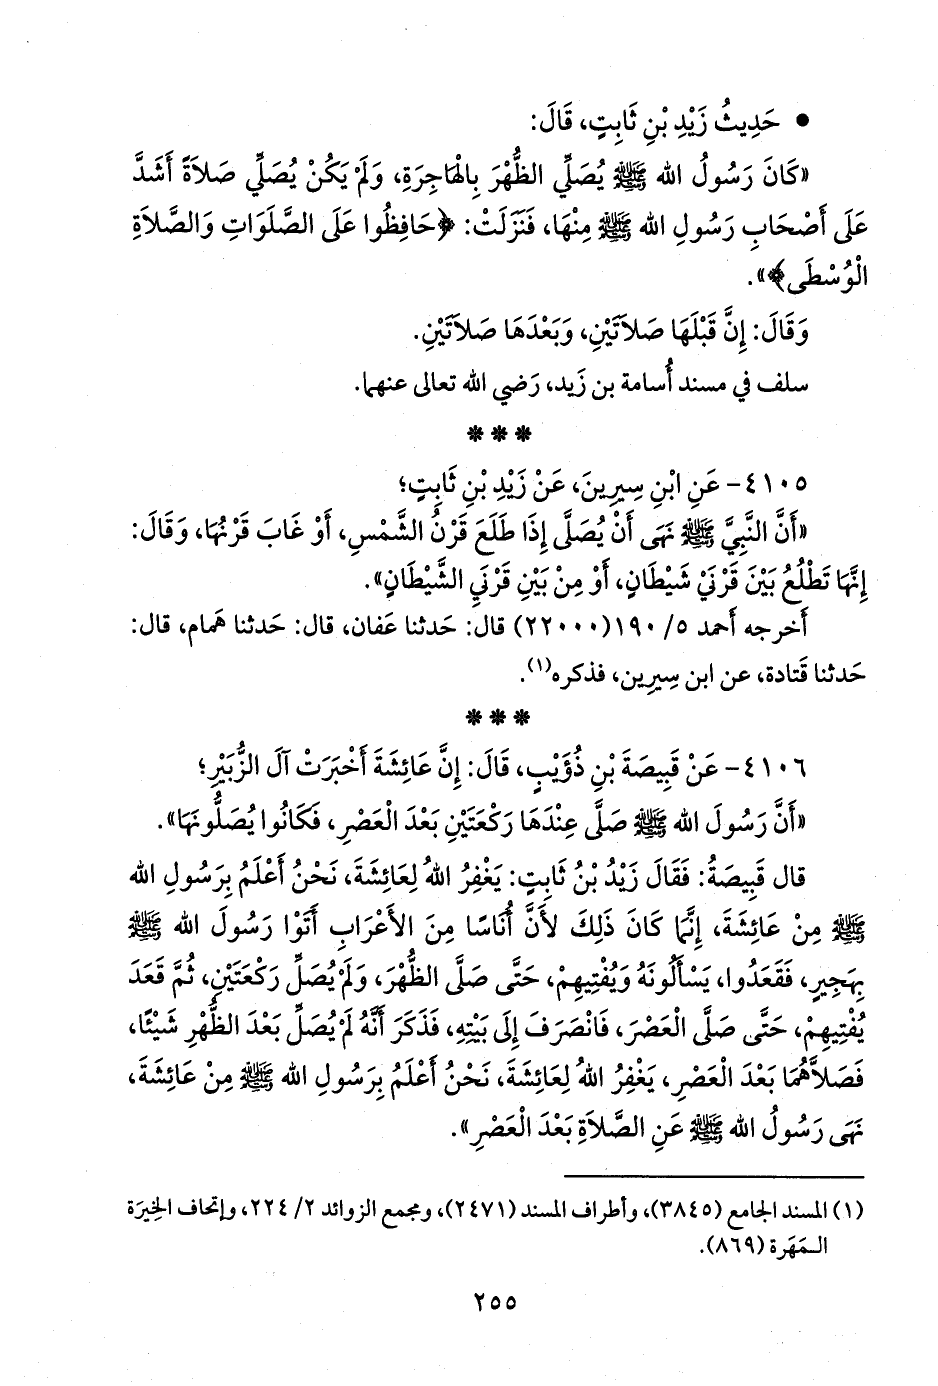 • حَدِيثُ زَيْدِ بْنِ ثَابِتٍ، قَالَ:
«كَانَ رَسُولُ الله ﷺ يُصَلِّي الظُّهْرَ بِالْهَاجِرَةِ، وَلَمْ يَكُنْ يُصَلِّي صَلاَةً أَشَدَّ
عَلَى أَصْحَابِ رَسُولِ الله ﷺ مِنْهَا، فَنَزَلَتْ: ﴿حَافِظُوا عَلَى الصَّلَوَاتِ وَالصَّلاَةِ
الْوُسْطَى﴾».
وَقَالَ: إِنَّ قَبْلَهَا صَلاَتَيْنِ، وَبَعْدَهَا صَلاَتَيْنِ.
سلف في مسند أُسامة بن زَيد، رَضي الله تعالى عنهما.
* * *
٤١٠٥- عَنِ ابْنِ سِيرِينَ، عَنْ زَيْدِ بْنِ ثَابِتٍ؛
«أَنَّ النَّبِيَّ ﷺ نَهَى أَنْ يُصَلَّى إِذَا طَلَعَ قَرْنُ الشَّمْسِ، أَوْ غَابَ قَرْنُهَا، وَقَالَ:
إِنَّهَا تَطْلُعُ بَيْنَ قَرْنَيْ شَيْطَانٍ، أَوْ مِنْ بَيْنِ قَرْنَيِ الشَّيْطَانِ».
أَخرجه أَحمد ٥/ ١٩٠(٢٢٠٠٠) قال: حَدثنا عَفان، قال: حَدثنا هَمام، قال:
حَدثنا قَتادة، عن ابن سِيرِين، فذكره(١).
* * *
٤١٠٦- عَنْ قَبِيصَةَ بْنِ ذُؤَيْبٍ، قَالَ: إِنَّ عَائِشَةَ أَخْبَرَتْ آلَ الزُّبَيْرِ؛
«أَنَّ رَسُولَ الله ﷺ صَلَّى عِنْدَهَا رَكْعَتَيْنِ بَعْدَ الْعَصْرِ، فَكَانُوا يُصَلُّونَهَا».
قال قَبِيصَةُ: فَقَالَ زَيْدُ بْنُ ثَابِتٍ: يَغْفِرُ اللهُ لِعَائِشَةَ، نَحْنُ أَعْلَمُ بِرَسُولِ الله
ﷺ مِنْ عَائِشَةَ، إِنَّمَا كَانَ ذَلِكَ لأَنَّ أُنَاسًا مِنَ الأَعْرَابِ أَتَوْا رَسُولَ الله ﷺ
بِهَجِيرٍ، فَقَعَدُوا، يَسْأَلُونَهُ وَيُفْتِيهِمْ، حَتَّى صَلَّى الظُّهْرَ، وَلَمْ يُصَلِّ رَكْعَتَيْنِ، ثُمَّ قَعَدَ
يُفْتِيهِمْ، حَتَّى صَلَّى الْعَصْرَ، فَانْصَرَفَ إِلَى بَيْتِهِ، فَذَكَرَ أَنَّهُ لَمْ يُصَلِّ بَعْدَ الظُّهْرِ شَيْئًا،
فَصَلاَّهُمَا بَعْدَ الْعَصْرِ، يَغْفِرُ اللهُ لِعَائِشَةَ، نَحْنُ أَعْلَمُ بِرَسُولِ الله ﷺ مِنْ عَائِشَةَ،
نَهَى رَسُولُ الله ﷺ عَنِ الصَّلاَةِ بَعْدَ الْعَصْرِ».
(١) المسند الجامع (٣٨٤٥)، وأطراف المسند (٢٤٧١)، ومجمع الزوائد ٢/ ٢٢٤، وإتحاف الخِيرَة
المَهَرة (٨٦٩).
٢٥٥